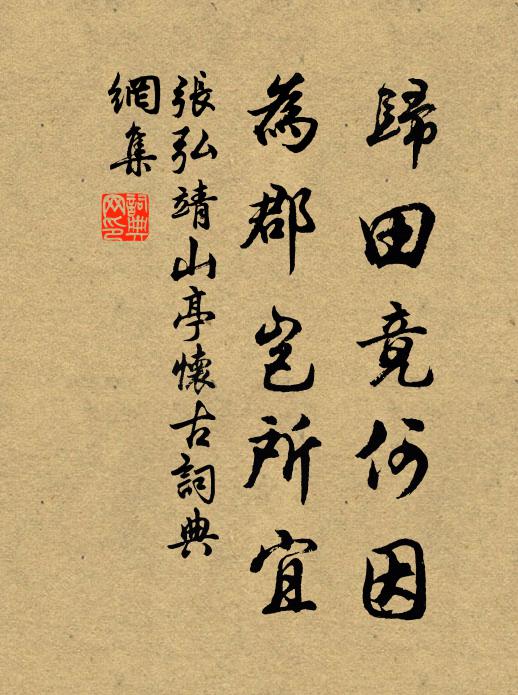 歸田竟何因
為郡豈所宜
張弘靖山亭懷古詞典
網集
詞典
网印